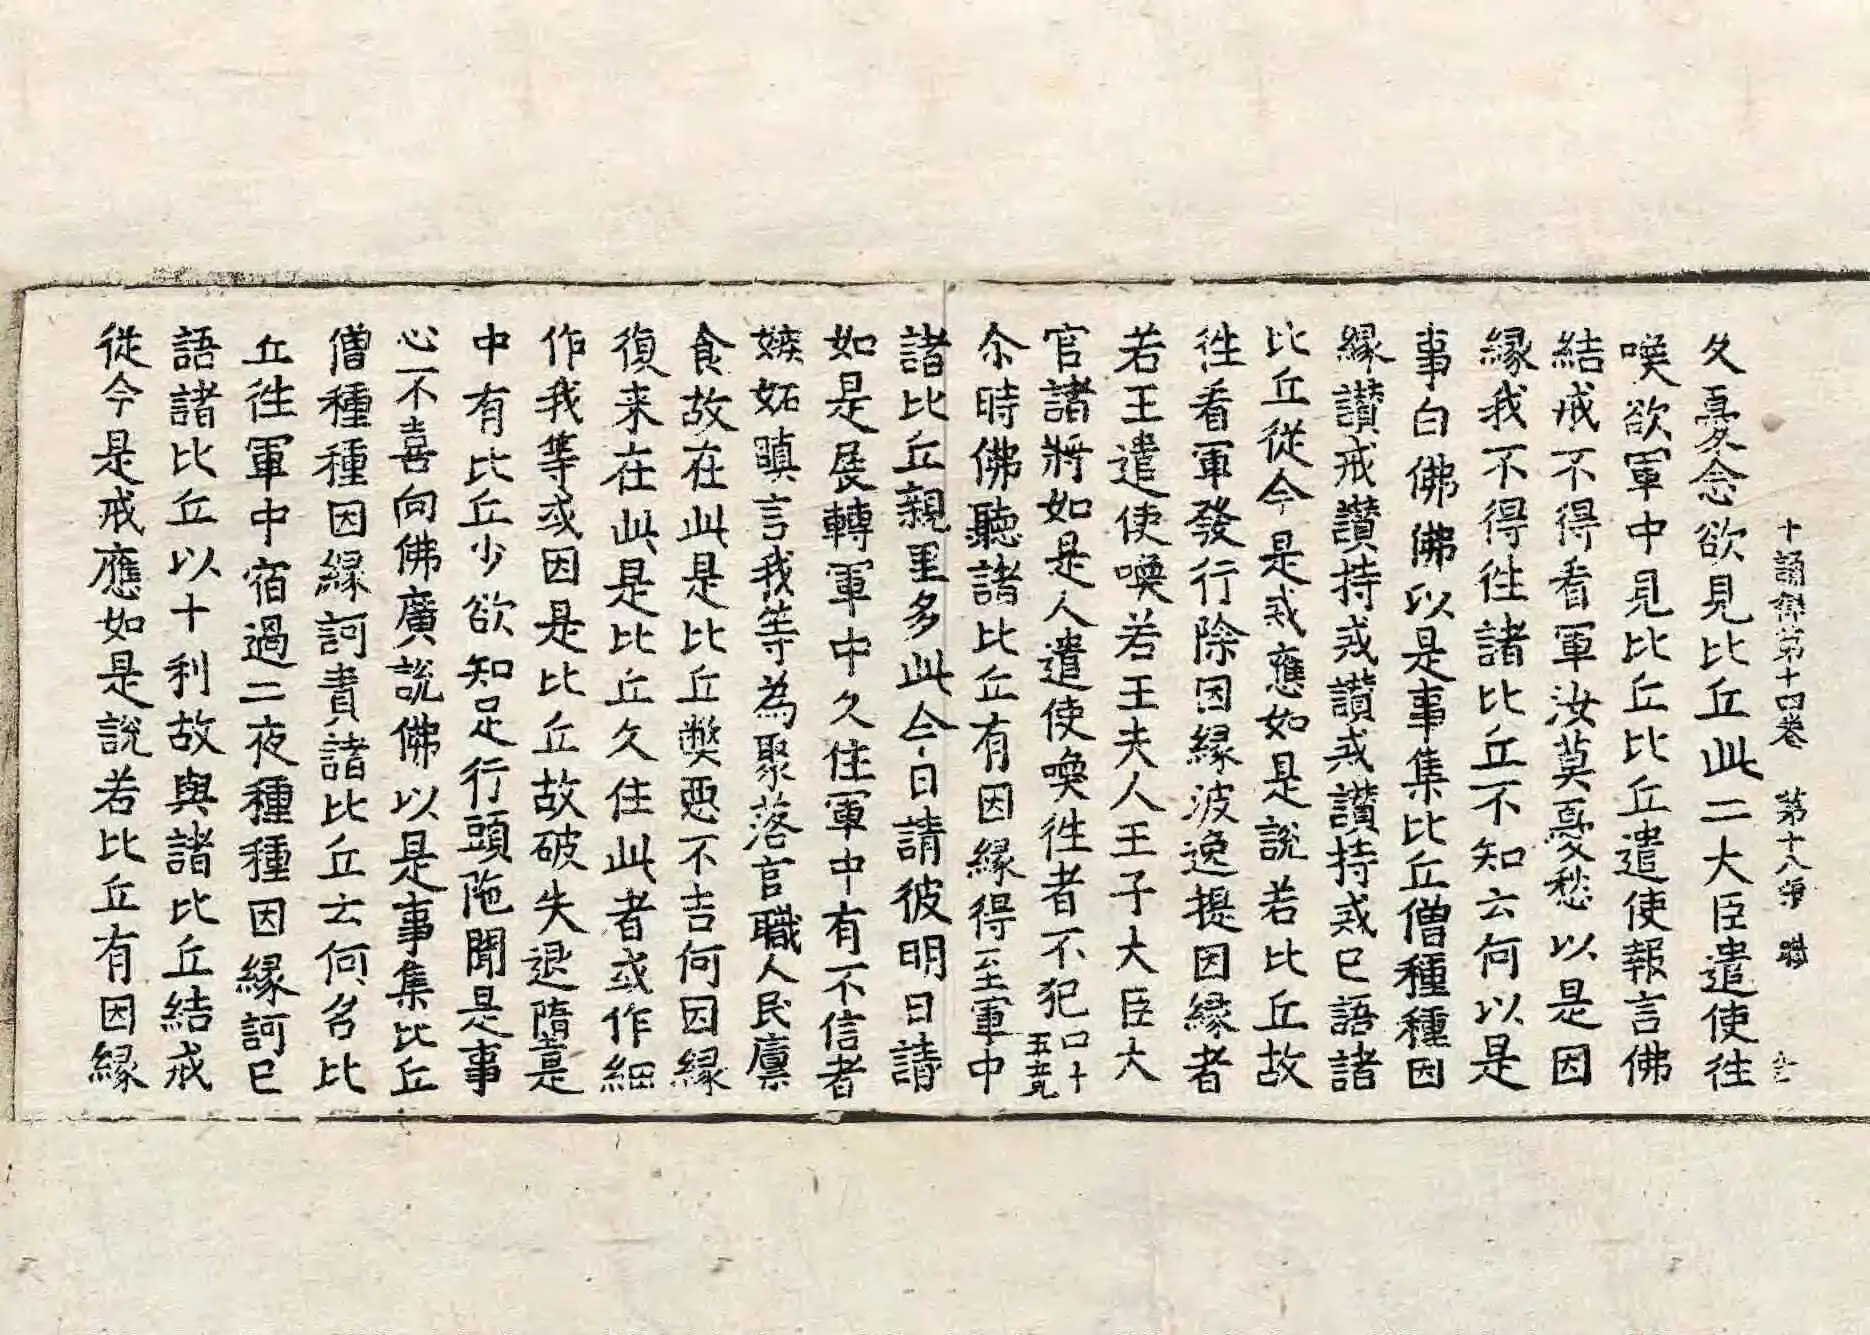 十誦律第十四卷 第十八張 職
久憂念欲見比丘此二大臣遣使往
喚欲軍中見比丘比丘遣使報言佛
結戒不得看軍汝莫憂愁以是因
縁我不得徃諸比丘不知云何以是
事白佛佛以是事集比丘僧種種因
縁讃戒讃持戒讃戒讃持戒已語諸
比丘從今是戒應如是説若比丘故
徃看軍發行除因縁波逸提因縁者
若王遣使喚若王夫人王子大臣大
官諸將如是人遣使喚徃者不犯四十五竟
尒時佛聽諸比丘有因縁得至軍中
諸比丘親里多此今日請彼明日請
如是展轉軍中久住軍中有不信者
嫉妬瞋言我等為聚落官職人民廩
食故在此是比丘弊惡不吉何因縁
復来在此是比丘久住此者或作細
作我等或因是比丘故破失退墮是
中有比丘少欲知足行頭陁聞是事
心不喜向佛廣説佛以是事集比丘
僧種種因縁訶責諸比丘云何名比
丘徃軍中宿過二夜種種因縁訶已
語諸比丘以十利故與諸比丘結戒
從今是戒應如是説若比丘有因縁